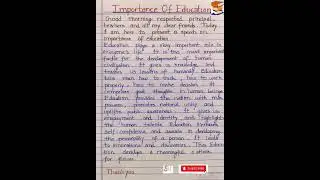 Importance Of Education
Good morning respected principal,
teachers and all my dear friends. Today
I am here to present a speech on
importance of education.
Education plays a very important role in
everyone's life. It is the most important
factor for the development of human
civilization. It gives us knowledge and
teaches us lessons of humanity. Education
tells man how to think, how to work
properly, how to make decision. It
completes good thoughts in human beings.
Education provides the nation with man
power, promotes national unity and
uplifts public awareness. It gives us
employment and identity and highlights
the human talents. Education enhances
self confidence and assists in developing
the personality of a person. It leads
to innovations and discoveries. Thus Educa-
tion develops a meaningful
for
Thank you
SUBSCRIBE